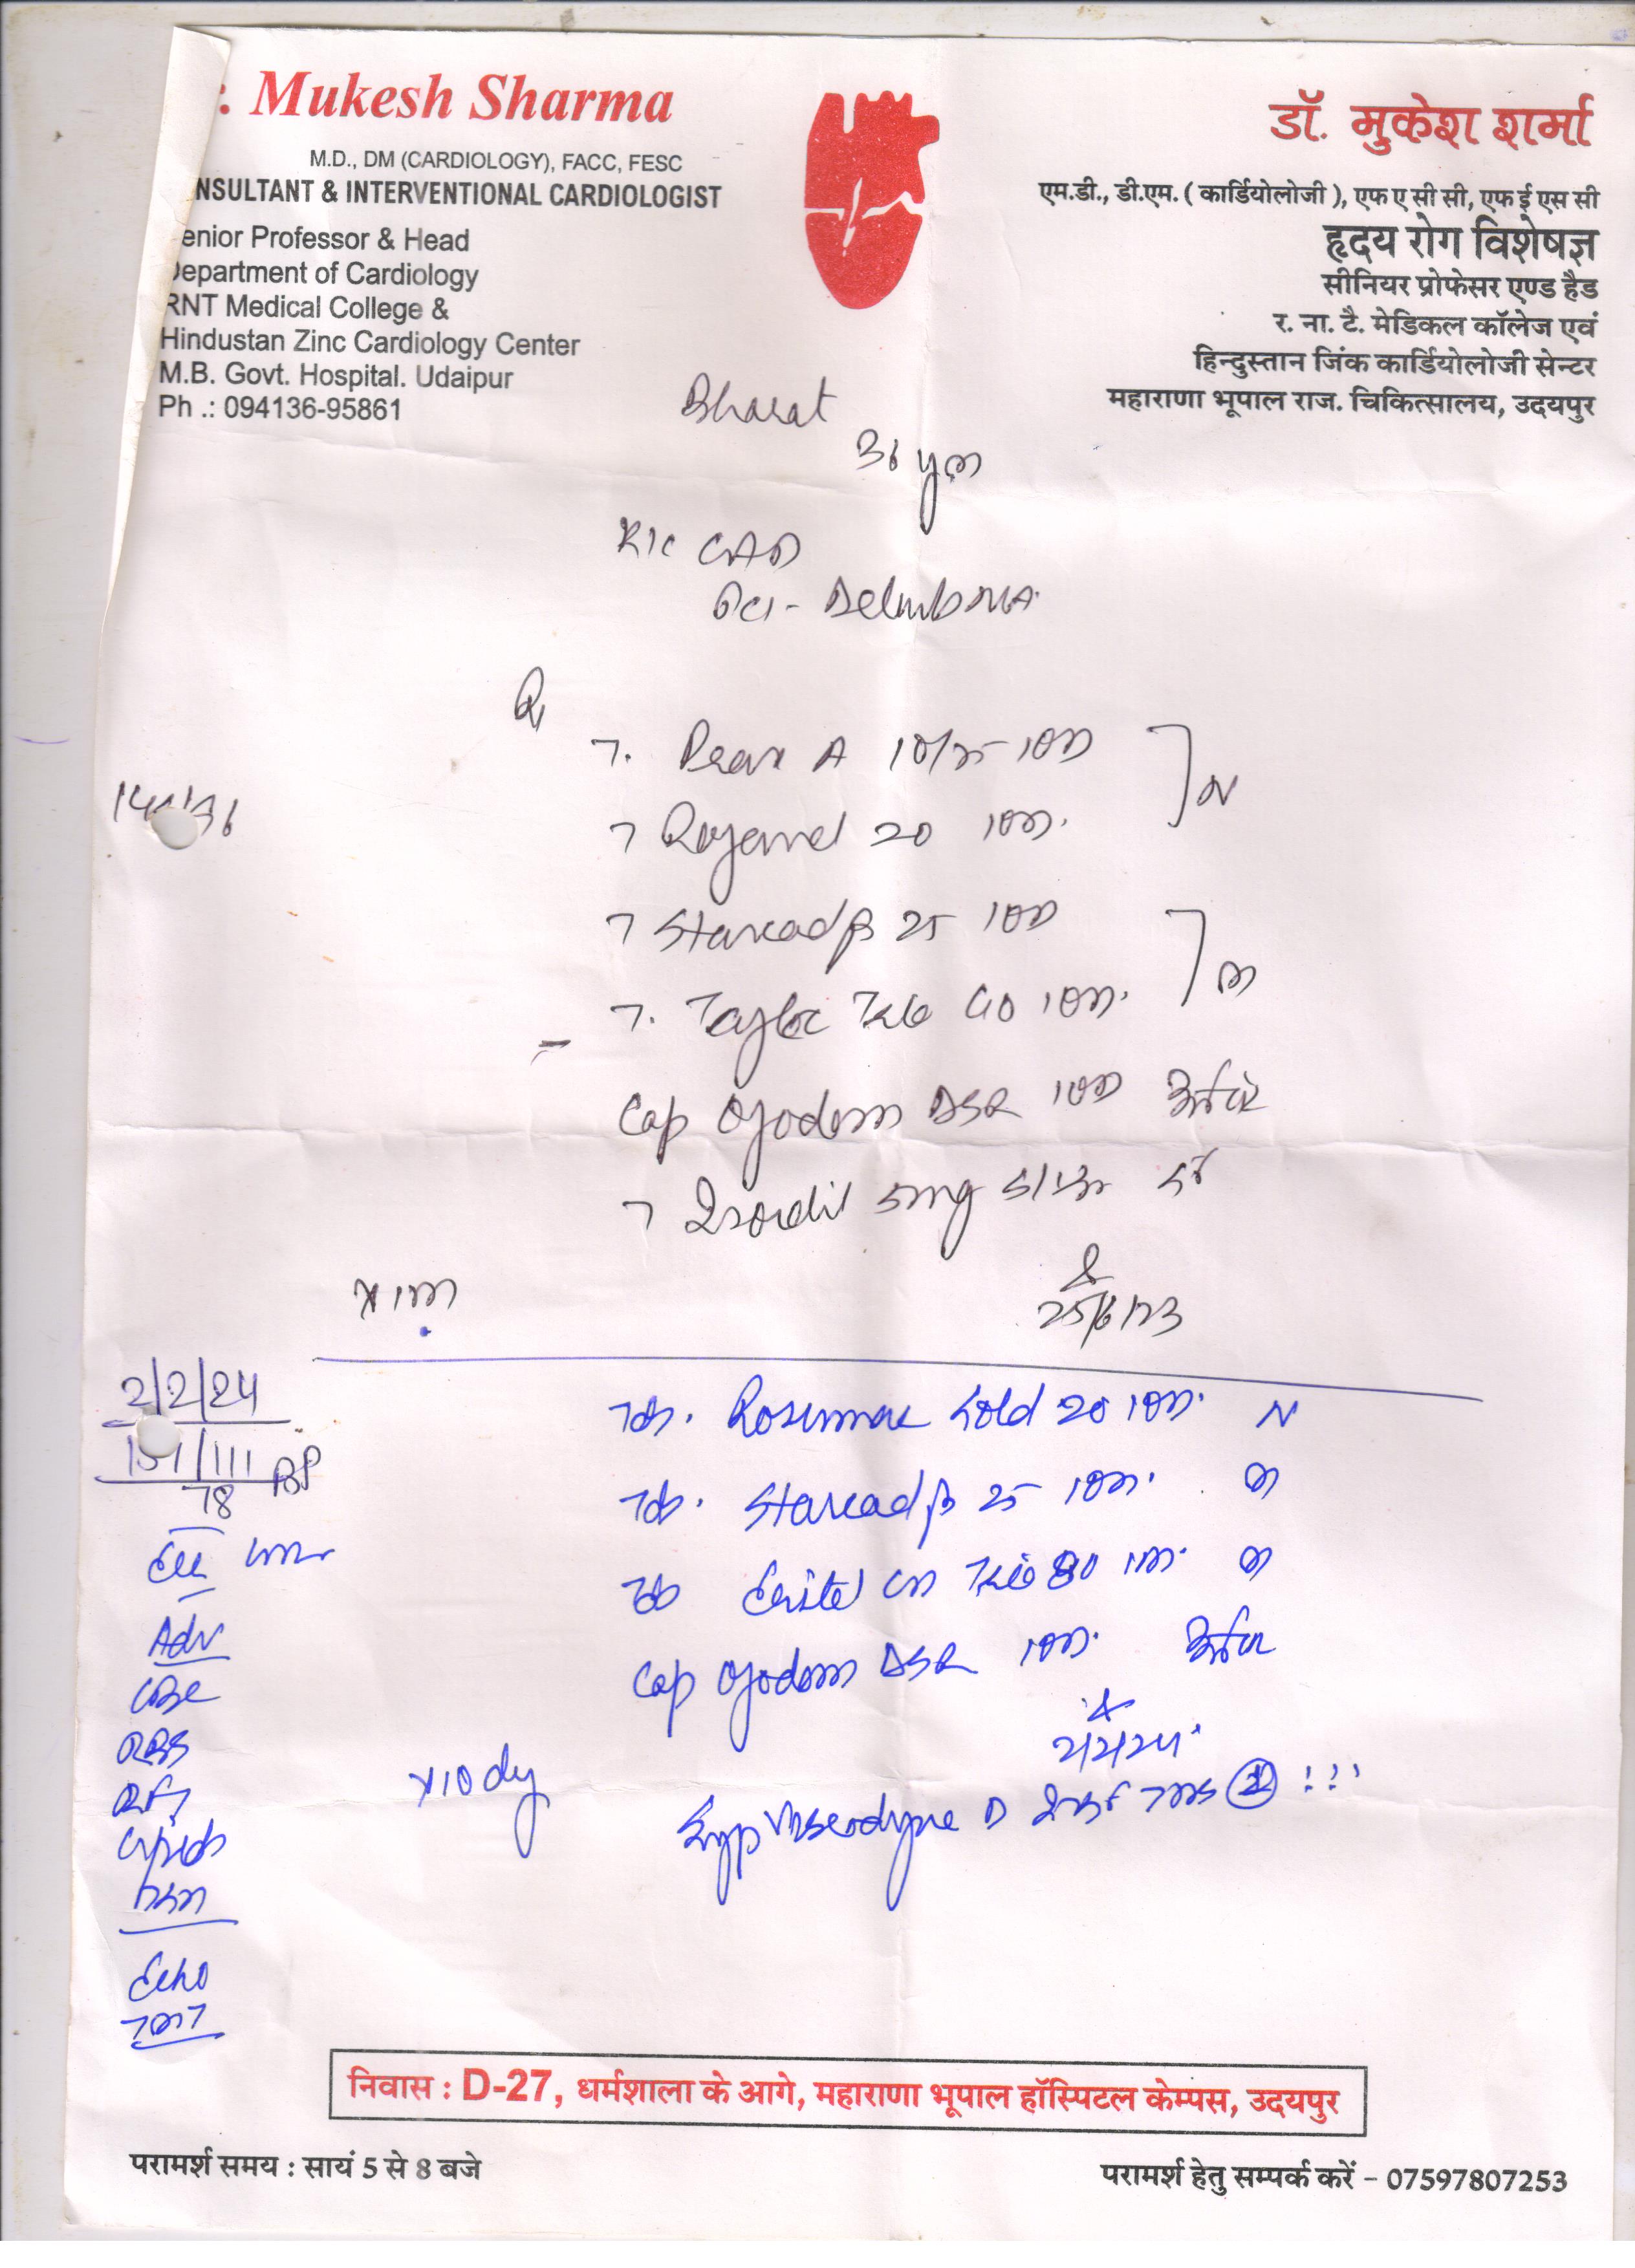 : Mukesh Sharma
M.D., DM (CARDIOLOGY), FACC, FESC
NSULTANT & INTERVENTIONAL CARDIOLOGIST
enior Professor & Head
Department of Cardiology
RNT Medical College &
Hindustan Zinc Cardiology Center
M.B. Govt. Hospital. Udaipur
Ph .: 094136-95861
डॉ. मुकेश शर्मा
एम.डी., डी.एम. ( कार्डियोलोजी ), एफ ए सी सी, एफ ई एस सी
हृदय रोग विशेषज्ञ
सीनियर प्रोफेसर एण्ड हैड
र. ना. टै. मेडिकल कॉलेज एवं
हिन्दुस्तान जिंक कार्डियोलोजी सेन्टर
महाराणा भूपाल राज. चिकित्सालय, उदयपुर
Bharat
36 ym
K/c CAD
PCI-
Rx
T. A 10/75 1OD
T 20 1OD. N
T Starcad β 25 1OD
T. 40 1OD. M
Cap Ojodom DSR 1OD
T Isordil 5mg S/L
x 1m
25/6/23
2/2/24
/111 BP
78
Adv
CBC
RBS
RFT
Lipids
Echo
TMT
Tab. Gold 20 1OD. N
Tab. Starcad β 25 1OD. M
Tab Eritel 80 M
Cap Ojodom DSR 1OD.
2/2/24.
x 10 day
Syp D
निवास : D-27, धर्मशाला के आगे, महाराणा भूपाल हॉस्पिटल केम्पस, उदयपुर
परामर्श समय : सायं 5 से 8 बजे
परामर्श हेतु सम्पर्क करें – 07597807253